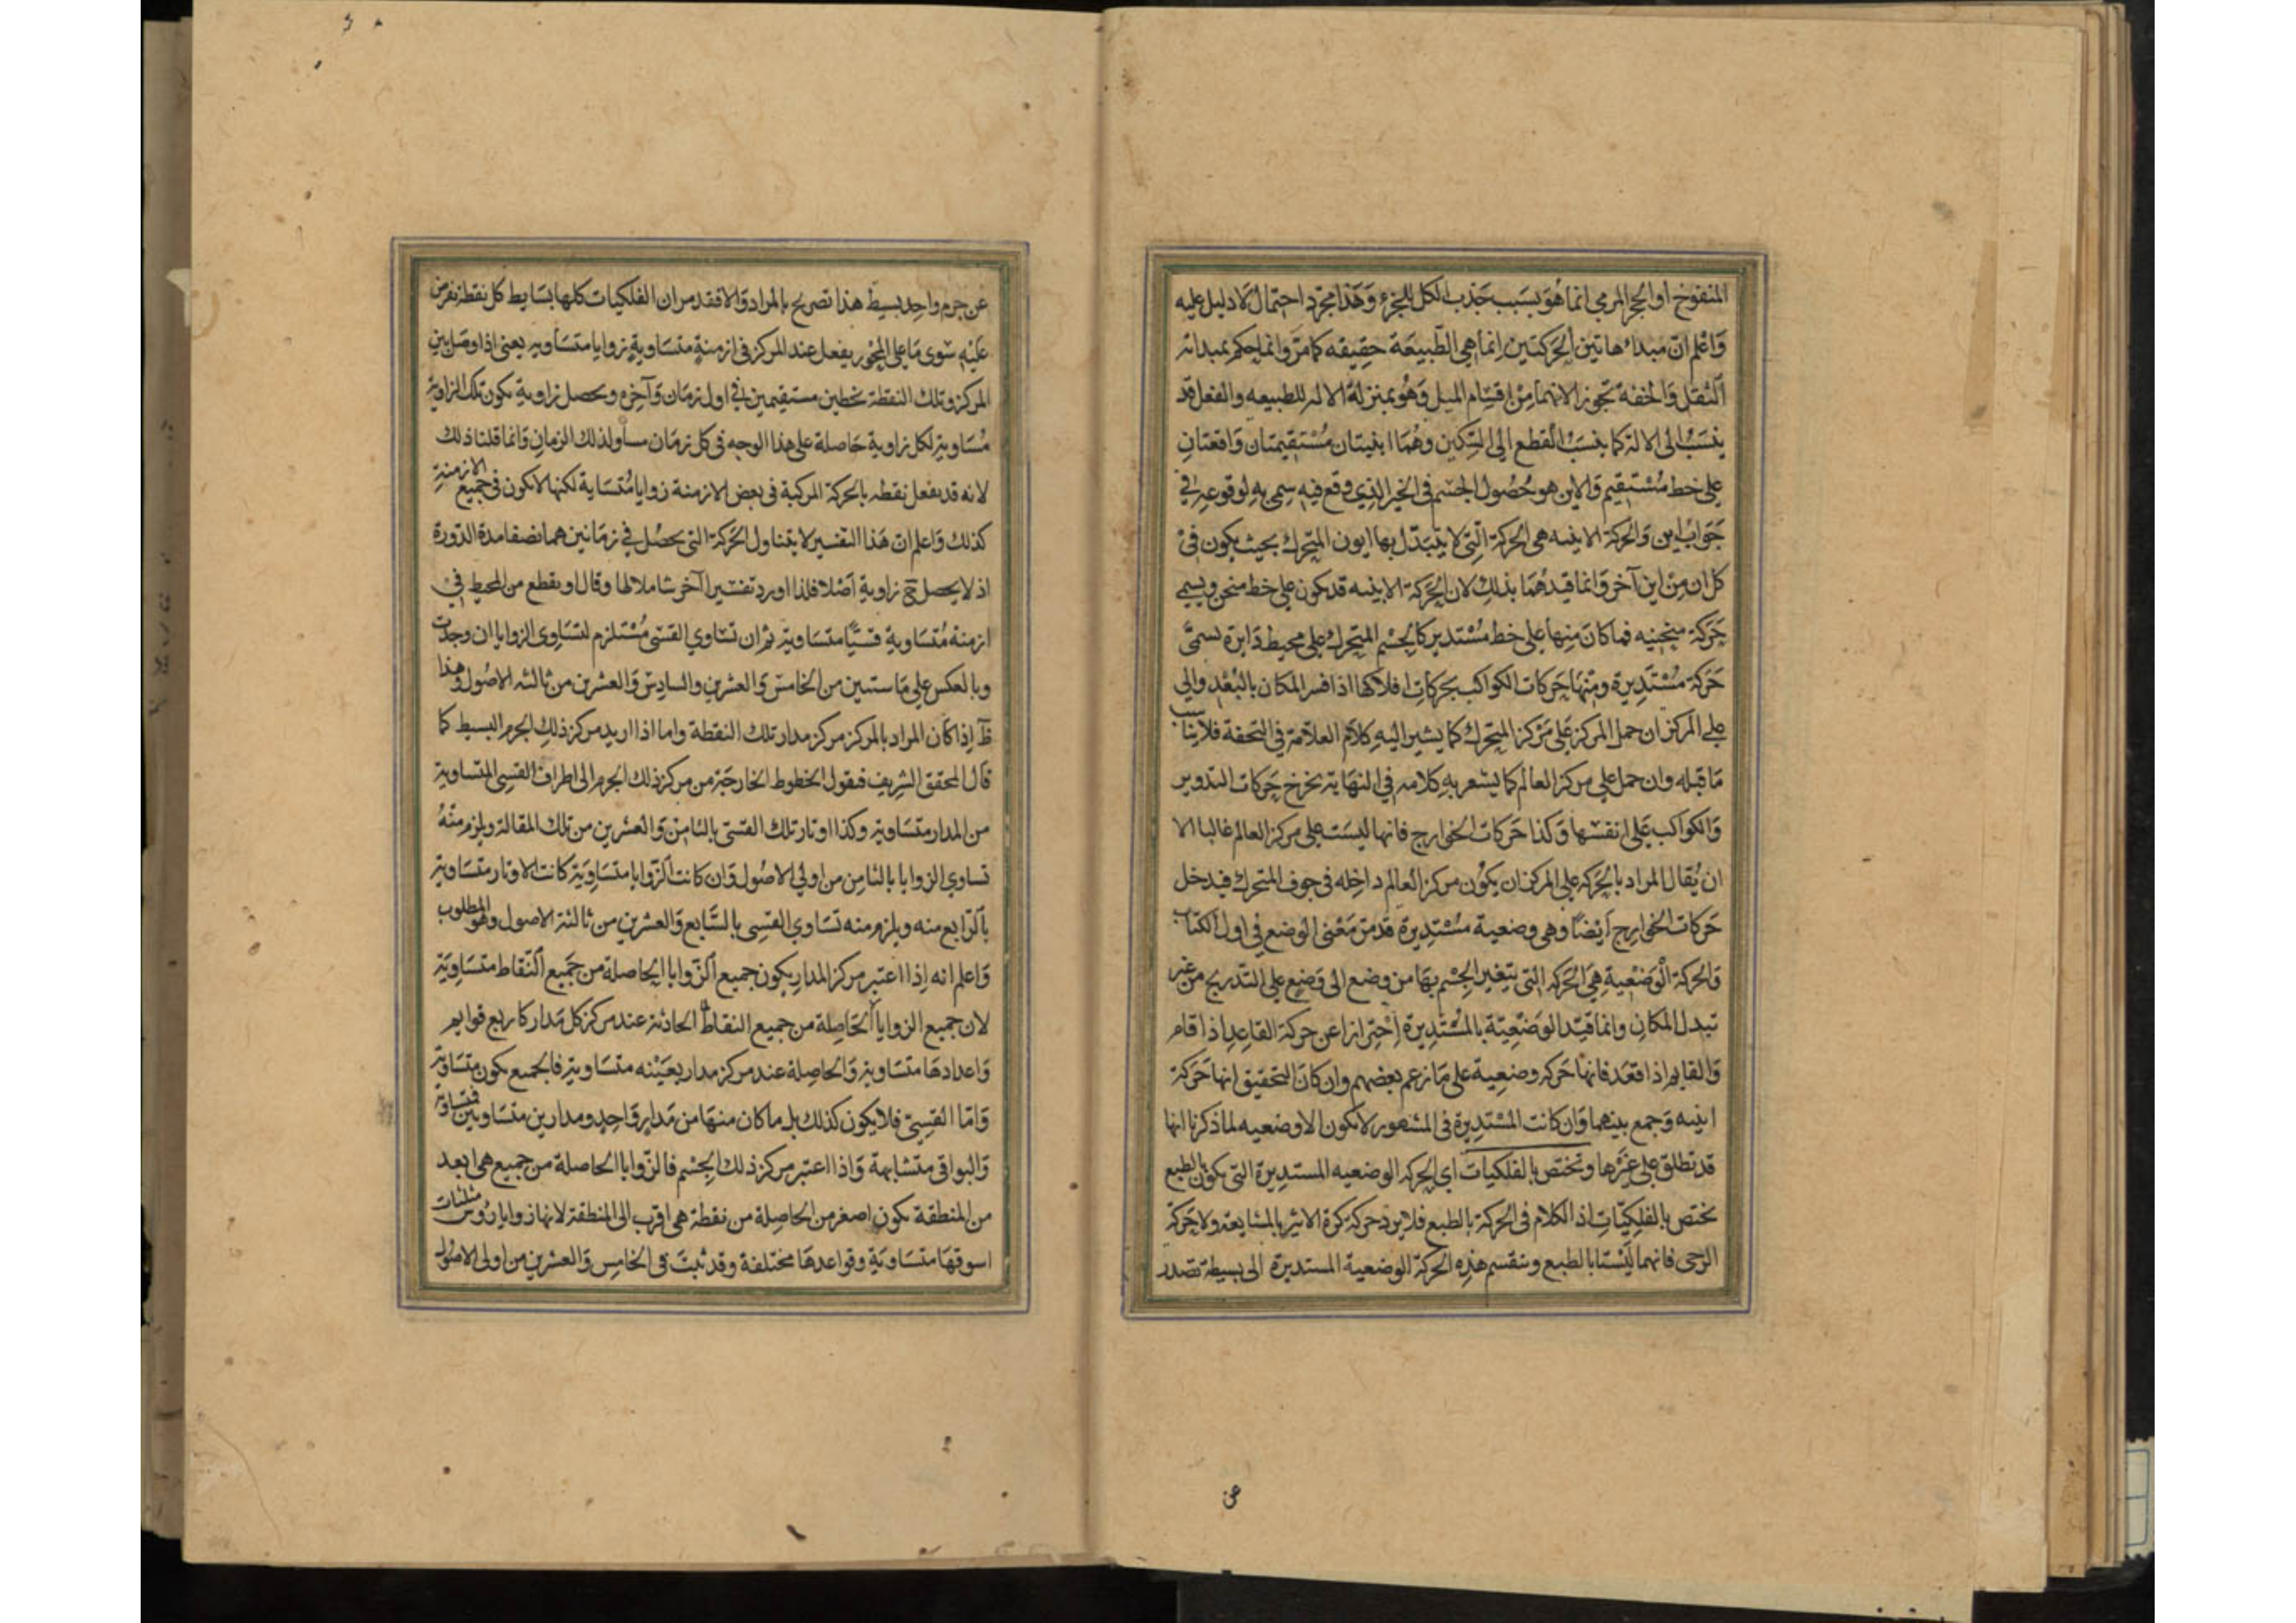 المنفوخ او الحجر المرمي انما هو بسبب جذب الكل للجزء وهذا مجرد احتمال لا دليل عليه
واعلم ان مبدا هاتين الحركتين انما هي الطبيعة حقيقه كما مر وانما حكم بمبدائه
الثقل والخفة تجوز الانهما من اقسام الميل وهو بمنزلة الاله للطبيعه والفعل قد
ينسب الى الالة كما ينسب القطع الى السكين وهما اينيتان مستقيمتان واقعتان
على خط مستقيم والاين هو حصول الجسم في الحيز الذي وقع فيه سمي به لوقوعه في
جواب اين والحركة الاينيه هي الحركة التي لا يتبدل بها ايون المتحرك بحيث يكون في
كل ان من اين آخر وانما قيدهما بذلك لان الحركة الاينيه قد يكون على خط منحن ويسمى
حركة منحنيه فما كان منها على خط مستدير كالجسم المتحرك على محيط دايرة تسمى
حركة مستديرة ومنها حركات الكواكب بحركات افلاكها اذا فسر المكان بالبعد والى
على المركز ان حمل المركز على مركز المتحرك كما يشير اليه كلام العلامة في التحفة فلا يناسب
ما قبله وان حمل على مركز العالم كما يشعر به كلامه في النهاية يخرج حركات التدوير
والكواكب على انفسها وكذا حركات الخوارج فانها ليست على مركز العالم غالبا الا
ان يقال المراد بالحركة على المركز ان يكون مركز العالم داخله في جوف المتحرك فيدخل
حركات الخوارج ايضا وهي وضعية مستديرة قد مر معنى الوضع في اول الكتاب
والحركة الوضعية هي الحركه التي يتغير الجسم بها من وضع الى وضع على التدريج من غير
تبدل المكان وانما قيد الوضعية بالمستديرة احترازا عن حركة القاعد اذا قام
والقايم اذا قعد فانها حركه وضعية على ما زعم بعضهم وان كان التحقيق انها حركة
اينيه وجمع بينهما وان كانت المستديرة في المشهور لا يكون الا وضعيه لما ذكرنا انها
قد تطلق على غيرها وتختص بالفلكيات اي الحركه الوضعيه المستديرة التي يكون بالطبع
يختص بالفلكيات اذ الكلام في الحركة بالطبع فلا يرد حركة كرة الاثير بالمشايعة ولا حركة
الرحى فانهما ليستا بالطبع وينقسم هذه الحركة الوضعية المستديرة الى بسيطة تصدر
عن
عن جرم واحد بسيط هذا تصريح بالمراد والا فقد مر ان الفلكيات كلها بسايط كل نقطة تفرض
عليه سوى ما على المحور يفعل عند المركز في ازمنة متساوية زوايا متساوية يعني اذا وصل بين
المركز وتلك النقطة بخطين مستقيمين في اول زمان وآخره ويحصل زاوية يكون تلك الزاوية
مساوية لكل زاوية حاصلة على هذا الوجه في كل زمان مساو لذلك الزمان وانما قلنا ذلك
لانه قد يفعل نقطه بالحركة المركبة في بعض الازمنة زوايا متساية لكنها لا يكون في جميع الازمنة
كذلك واعلم ان هذا التفسير لا يتناول الحركة التي يحصل في زمانين هما نصفا مدة الدورة
اذ لا يحصل ح زاوية اصلا فلذا اورد تفسيرا آخر شاملا لها وقال او يقطع من المحيط في
ازمنة متساوية قسيا متساوية ثم ان تساوي القسى مستلزم لتساوى الزوايا ان وجدت
وبالعكس على ما ستبين من الخامس والعشرين والسادس والعشرين من ثالثه الاصول وهذا
ظ اذا كان المراد بالمركز مركز مدار تلك النقطة واما اذا اريد مركز ذلك الجرم البسيط كما
قال المحقق الشريف فيقول الخطوط الخارجة من مركز ذلك الجرم الى اطراف القسى المتساوية
من المدار متساوية وكذا اوتار تلك القسى بالثامن والعشرين من تلك المقالة ويلزم منه
تساوي الزوايا بالثامن من اولي الاصول وان كانت الزوايا متساوية كانت الاوتار متساوية
بالرابع منه ويلزم منه تساوي القسى بالسابع والعشرين من ثالثة الاصول وهو المطلوب
واعلم انه اذا اعتبر مركز المدار يكون جميع الزوايا الحاصلة من جميع النقاط متساوية
لان جميع الزوايا الحاصلة من جميع النقاط الحادثة عند مركز كل مدار كاربع قوايم
واعدادها متساوية والحاصلة عند مركز مدار بعينه متساوية فالجميع يكون متساوية
واما القسى فلا يكون كذلك بل ما كان منها من مدار واحد ومدارين متساويين فمتساوية
والبواقي متشابهة واذا اعتبر مركز ذلك الجسم فالزوايا الحاصلة من جميع هي ابعد
من المنطقة يكون اصغر من الحاصلة من نقطة هي اقرب الى المنطقة لانها زوايا رؤس مثلثات
اسوقها متساوية وقواعدها مختلفة وقد ثبت في الخامس والعشرين من اولى الاصول